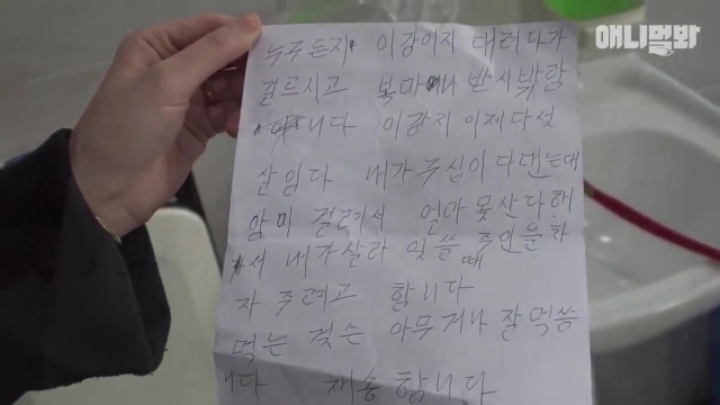 애니멀봐
누구든지 이강이지 대려다가
길르시고 복마니 받시바람
니다 이강지 이제다섯
살임다 내가주신이다댄는대
암미 걸려서 얼마못산다해
서 내가살라 잇쓸때 주인을차
자 주려고 합니다
먹는 것슨 아무거나 잘먹씀
니다 재송합니다